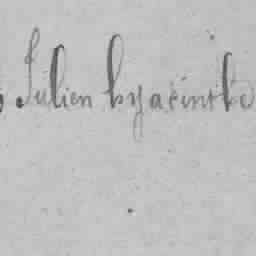 Julien hyacinthe